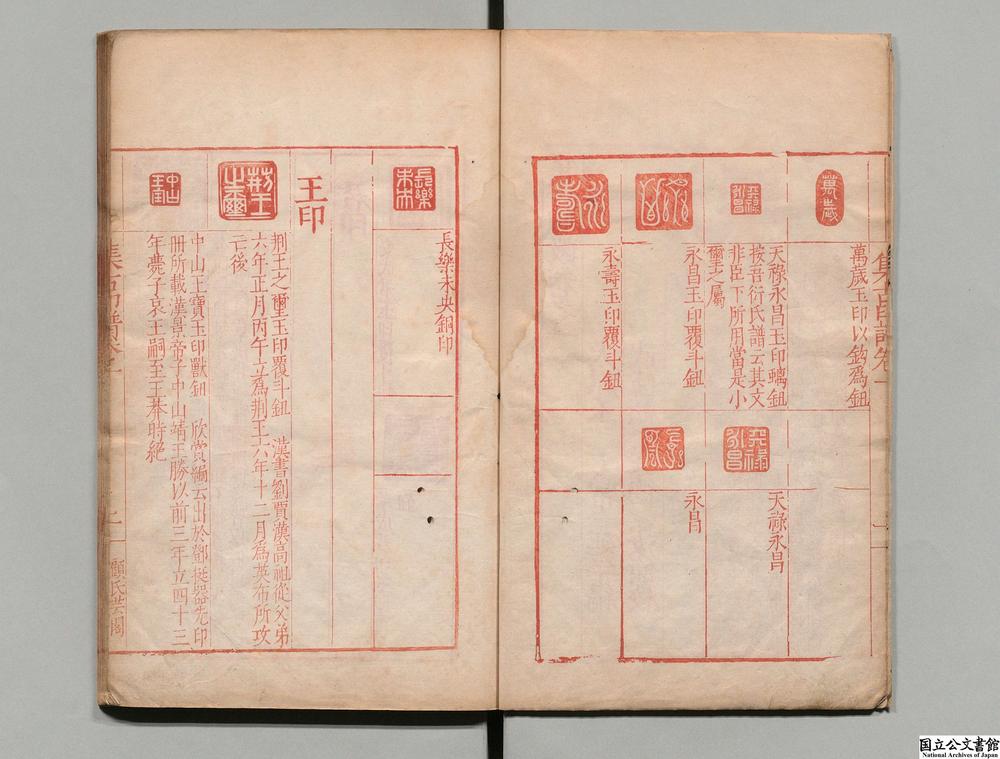 集古印譜卷一
萬歲
萬歲玉印以鈎爲鈕
天祿永昌
天祿永昌玉印螭鈕
按吾衍氏譜云其文
非臣下所用當是小
璽之屬
永昌玉印覆斗鈕
永壽
永壽玉印覆斗鈕
天祿永昌
天祿永昌
永昌
長樂未央
長樂未央銅印
王印
荊王之璽
荊王之璽玉印覆斗鈕 漢書劉賈漢高祖從父弟
六年正月丙午立爲荊王六年十二月爲英布所攻
亡後
中山王寶
中山王寶玉印獸鈕 欣賞編云出於鄧挺器先印
冊所載漢景帝子中山靖王勝以前三年立四十三
年薨子哀王嗣至王莽時絕
集古印譜卷一
二
顧氏芸閣
国立公文書館
National Archives of Japan